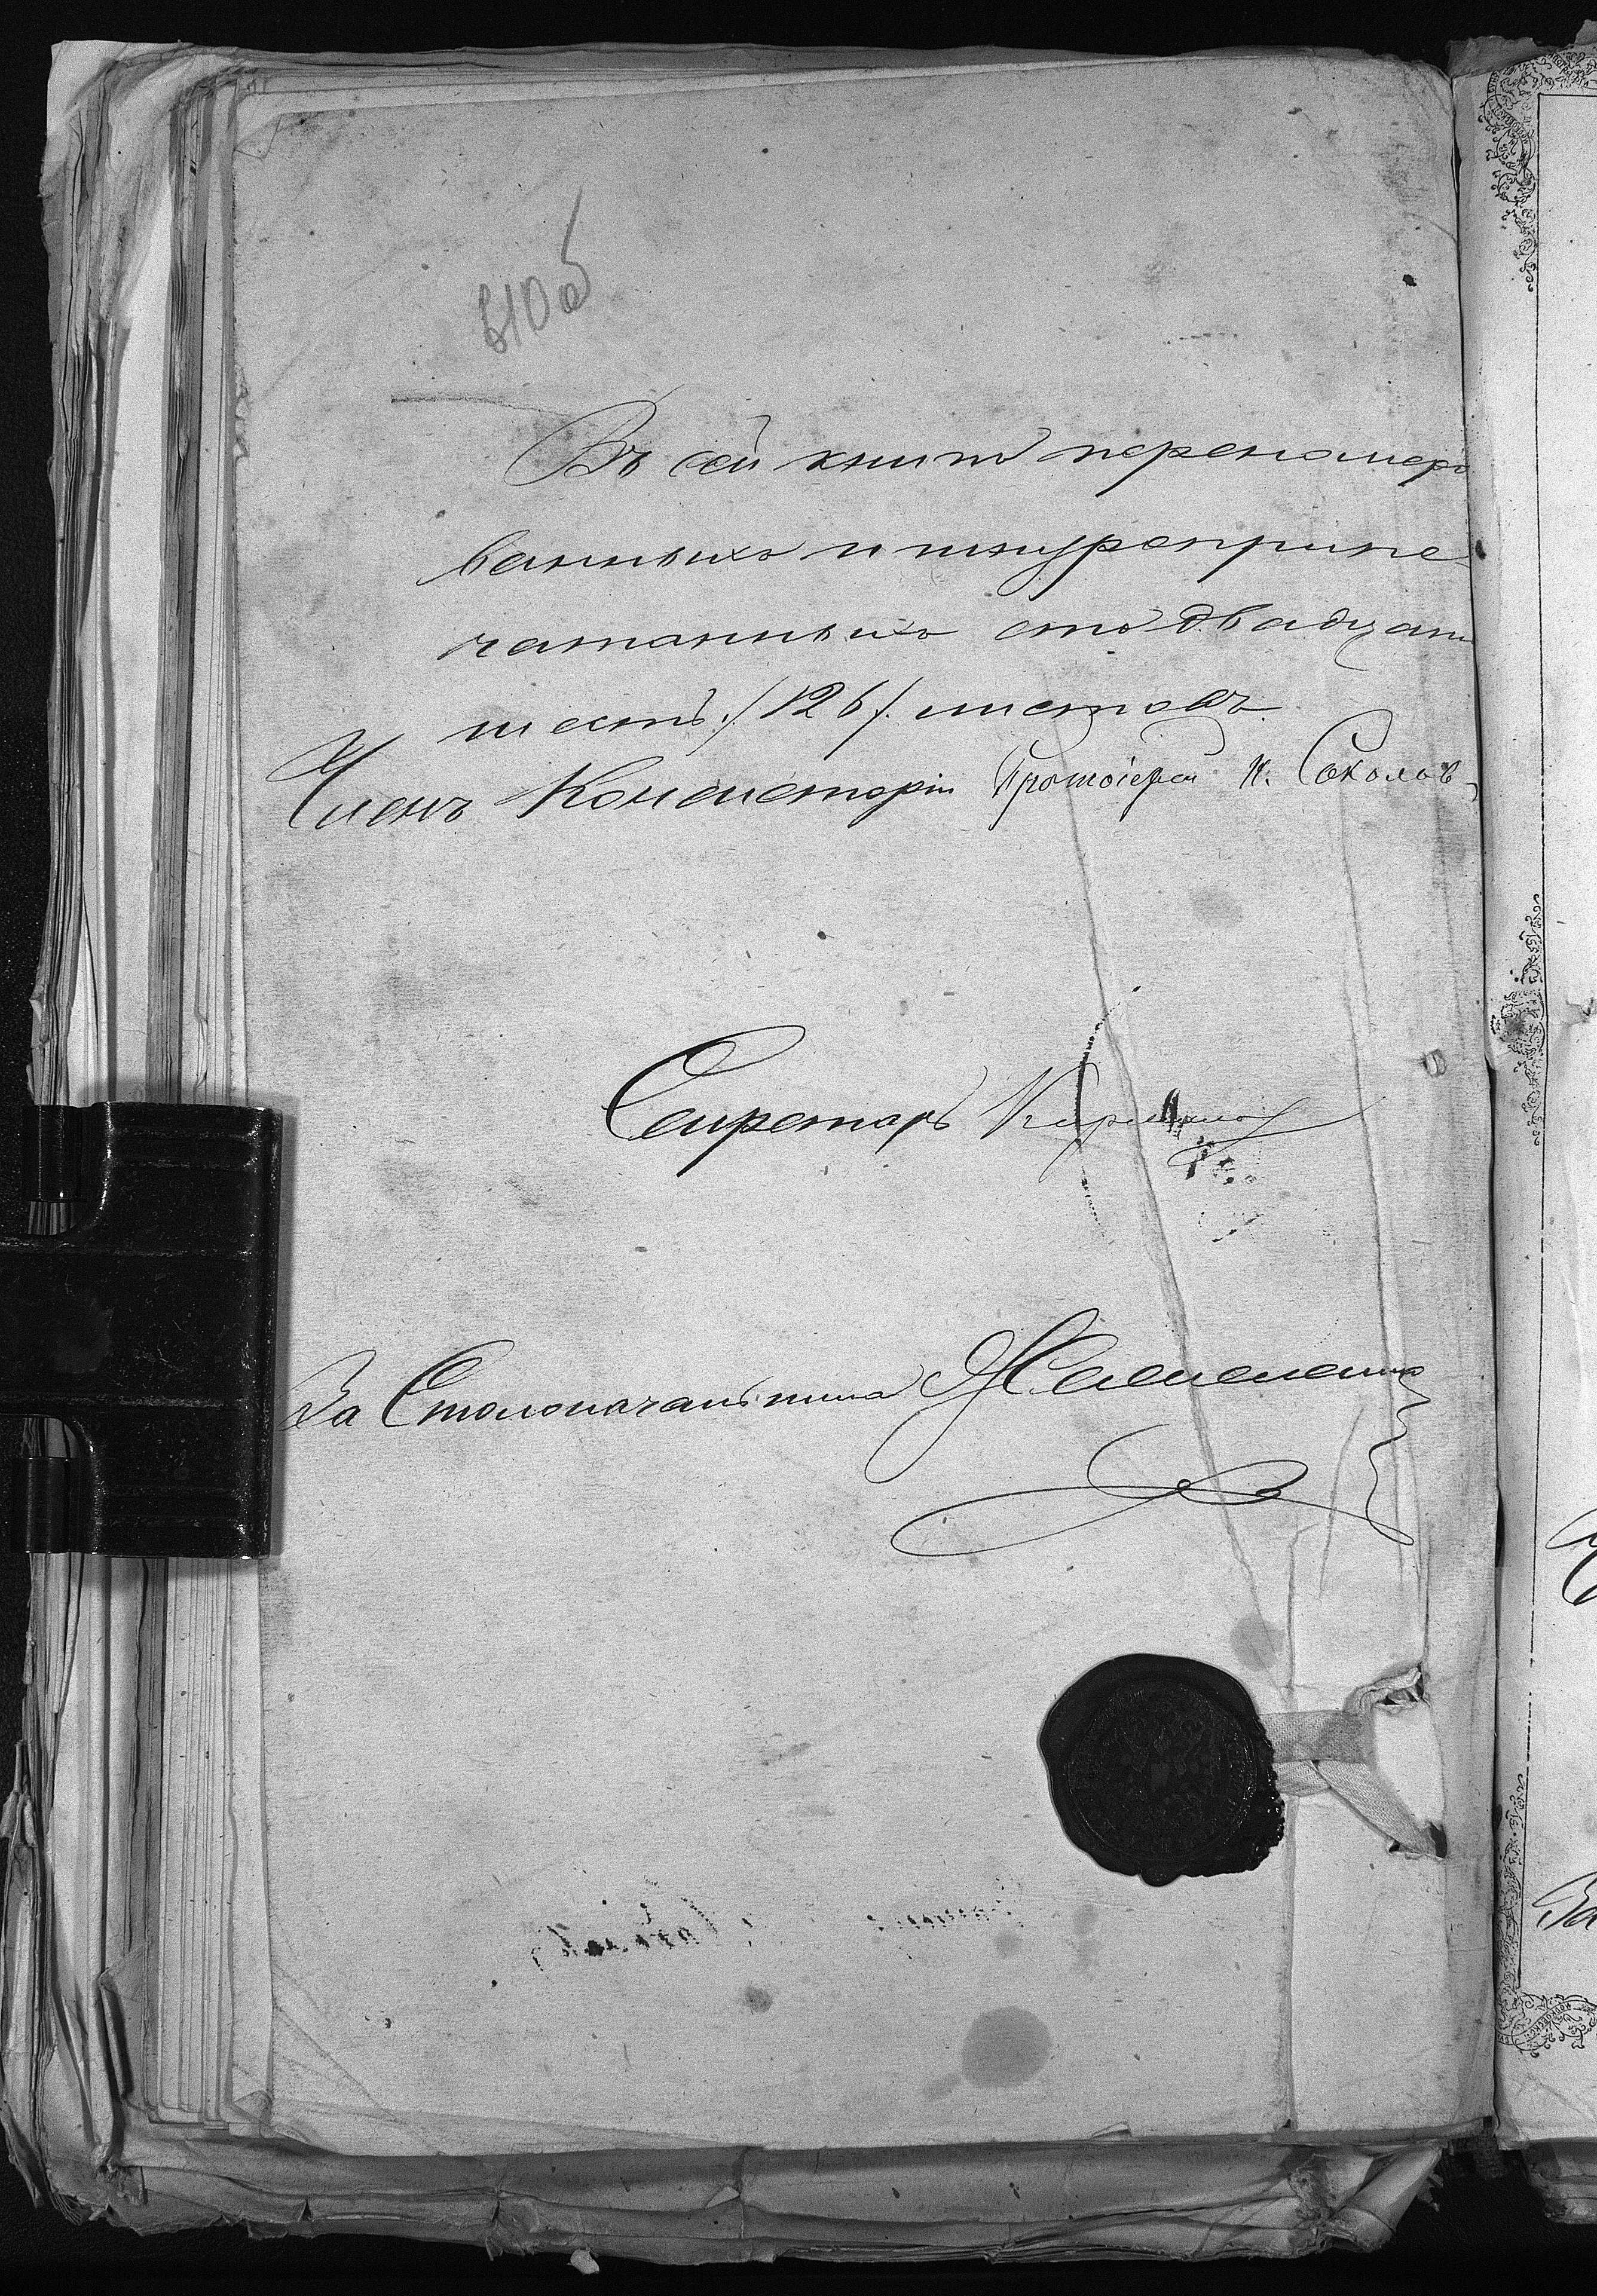 510об
Въ сей книгѣ перенумеро
ванныхъ и шнуроприпе-
чатанныхъ сто двадцать
шесть /126/. листовъ.
Членъ Консисторіи Протоіерей Н. Соколовъ
Секретарь
За Столоначальника